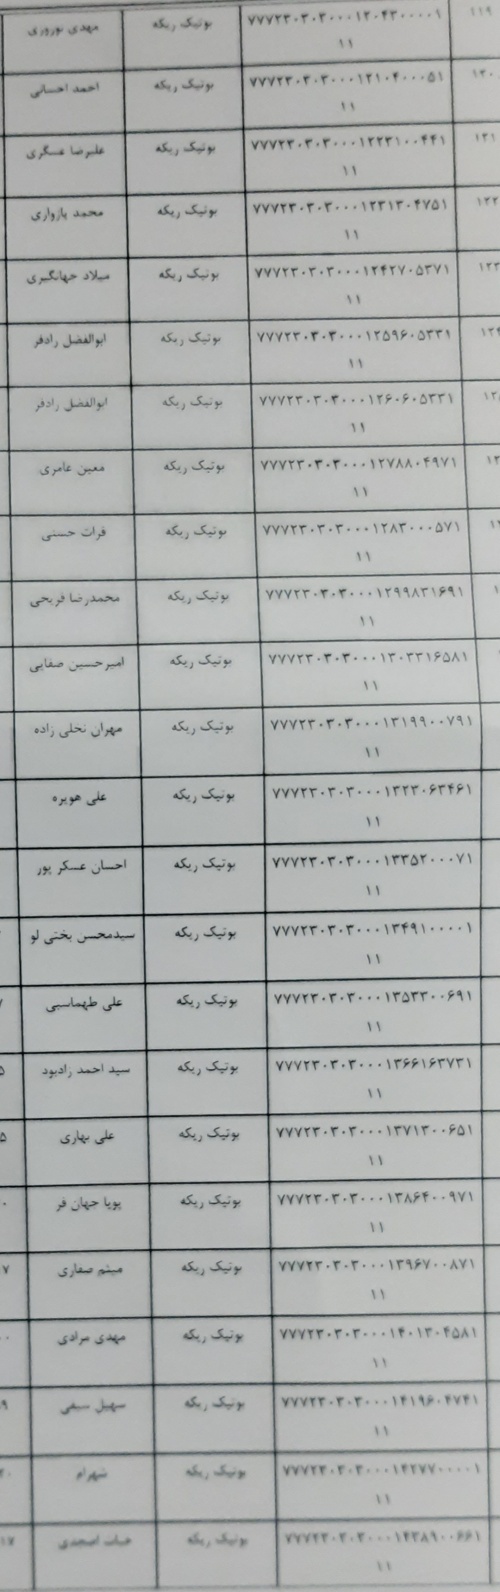 ۱۱۹ ۷۷۷۲۳۰۳۰۳۰۰۰۱۲۰۴۳۰۰۰۰۹ بوتیک ریکه مهدی نوروزی
۱۱
۷۷۷۲۳۰۳۰۳۰۰۰۱۲۱۰۴۰۰۰۵۱ بوتیک ریکه احمد احسانی
۱۱
۷۷۷۲۳۰۳۰۳۰۰۰۱۲۲۳۱۰۰۴۴۱ بوتیک ریکه علیرضا عسگری
۱۱
۷۷۷۲۳۰۳۰۳۰۰۰۱۲۳۱۳۰۴۷۵۱ بوتیک ریکه محمد بازواری
۱۱
۷۷۷۲۳۰۳۰۳۰۰۰۱۲۴۲۷۰۵۳۷۱ بوتیک ریکه میلاد جهانگیری
۱۱
۷۷۷۲۳۰۳۰۳۰۰۰۱۲۵۹۶۰۵۳۳۱ بوتیک ریکه ابوالفضل رادفر
۱۱
۷۷۷۲۳۰۳۰۳۰۰۰۱۲۶۰۶۰۵۳۳۱ بوتیک ریکه ابوالفضل رادفر
۱۱
۷۷۷۲۳۰۳۰۳۰۰۰۱۲۷۸۸۰۴۹۷۱ بوتیک ریکه معین عامری
۱۱
۷۷۷۲۳۰۳۰۳۰۰۰۱۲۸۳۰۰۰۵۷۱ بوتیک ریکه فرات حسنی
۱۱
۷۷۷۲۳۰۳۰۳۰۰۰۱۲۹۹۸۳۱۶۹۱ بوتیک ریکه محمدرضا فریحی
۱۱
۷۷۷۲۳۰۳۰۳۰۰۰۱۳۰۳۳۱۶۵۸۱ بوتیک ریکه امیرحسین صفایی
۱۱
۷۷۷۲۳۰۳۰۳۰۰۰۱۳۱۹۹۰۰۷۹۱ بوتیک ریکه مهران نخلی زاده
۱۱
۷۷۷۲۳۰۳۰۳۰۰۰۱۳۲۳۰۶۳۴۶۱ بوتیک ریکه علی هویره
۱۱
۷۷۷۲۳۰۳۰۳۰۰۰۱۳۳۵۲۰۰۰۷۱ بوتیک ریکه احسان عسکر پور
۱۱
۷۷۷۲۳۰۳۰۳۰۰۰۱۳۴۹۱۰۰۰۰۱ بوتیک ریکه سیدمحسن بختی لو
۱۱
۷۷۷۲۳۰۳۰۳۰۰۰۱۳۵۳۳۰۰۶۹۱ بوتیک ریکه علی طهماسبی
۱۱
۷۷۷۲۳۰۳۰۳۰۰۰۱۳۶۶۱۶۳۷۳۱ بوتیک ریکه سید احمد رادبود
۱۱
۷۷۷۲۳۰۳۰۳۰۰۰۱۳۷۱۳۰۰۶۵۱ بوتیک ریکه علی بهاری
۱۱
۷۷۷۲۳۰۳۰۳۰۰۰۱۳۸۶۴۰۰۹۷۱ بوتیک ریکه پویا جهان فر
۱۱
۷۷۷۲۳۰۳۰۳۰۰۰۱۳۹۶۷۰۰۸۷۱ بوتیک ریکه میثم صفاری
۱۱
۷۷۷۲۳۰۳۰۳۰۰۰۱۴۰۱۳۰۴۵۸۱ بوتیک ریکه مهدی مرادی
۱۱
۷۷۷۲۳۰۳۰۳۰۰۰۱۴۱۹۶۰۴۷۴۱ بوتیک ریکه سهیل سیفی
۱۱
۷۷۷۲۳۰۳۰۳۰۰۰۱۴۲۷۷۰۰۰۰۱ بوتیک ریکه شهرام
۱۱
۷۷۷۲۳۰۳۰۳۰۰۰۱۴۳۸۹۰۰۶۶۱ بوتیک ریکه
۱۱